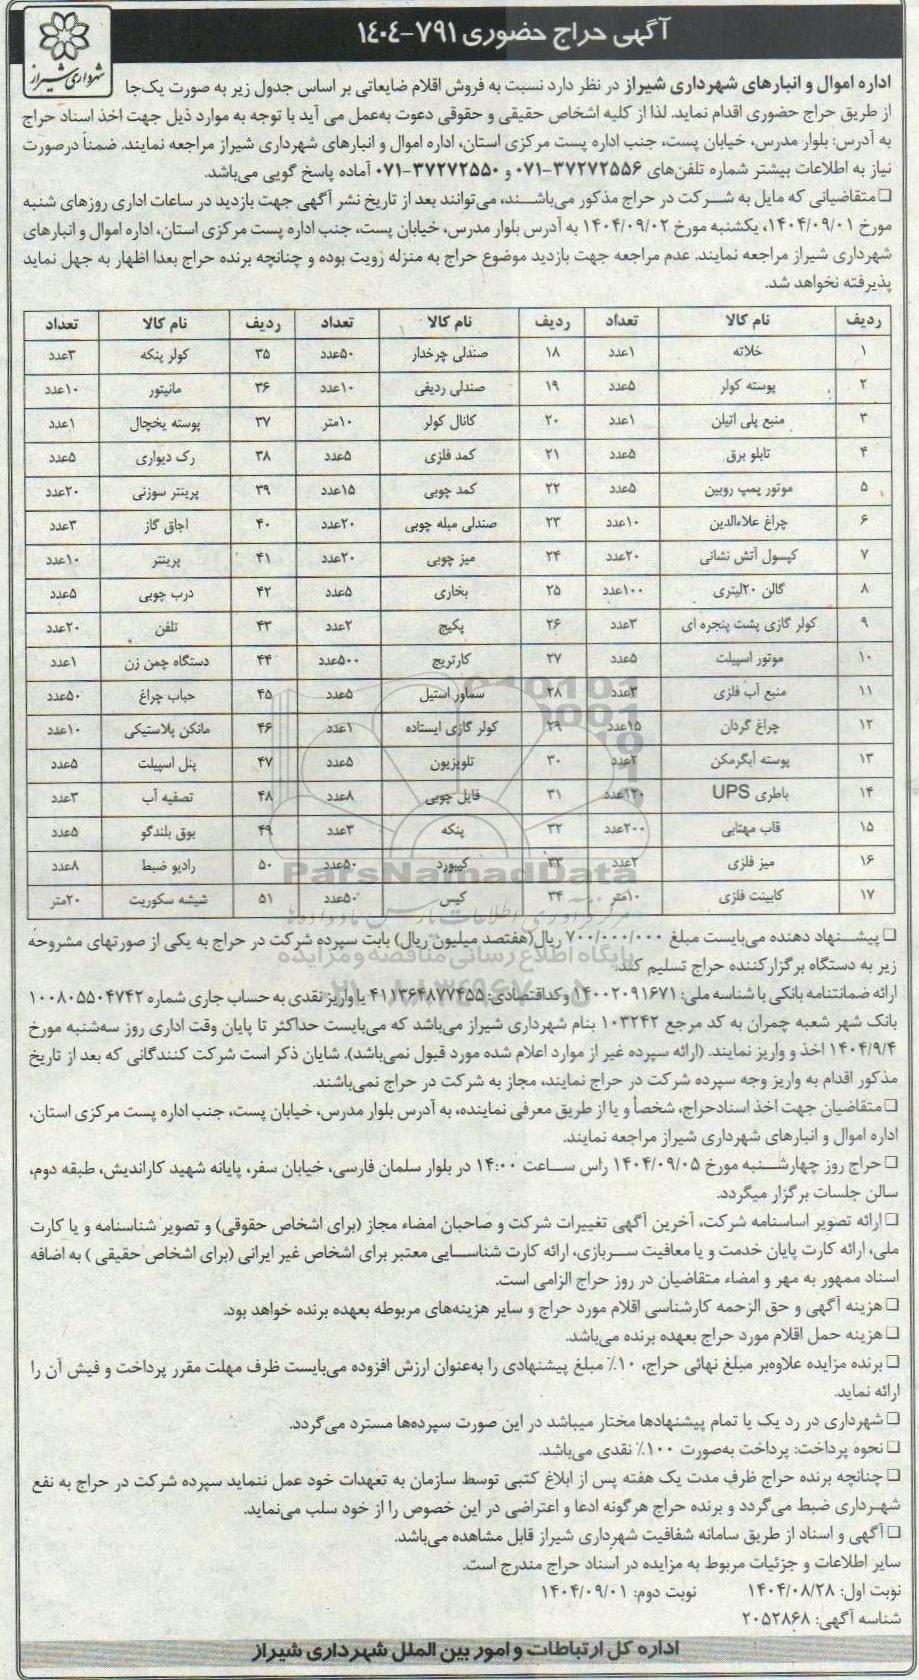 آگهی حراج حضوری ۷۹۱-۱۴۰۴
شهرداری شیراز
اداره اموال و انبارهای شهرداری شیراز در نظر دارد نسبت به فروش اقلام ضایعاتی بر اساس جدول زیر به صورت یک‌جا
از طریق حراج حضوری اقدام نماید. لذا از کلیه اشخاص حقیقی و حقوقی دعوت به‌عمل می آید با توجه به موارد ذیل جهت اخذ اسناد حراج
به آدرس: بلوار مدرس، خیابان پست، جنب اداره پست مرکزی استان، اداره اموال و انبارهای شهرداری شیراز مراجعه نمایند. ضمناً درصورت
نیاز به اطلاعات بیشتر شماره تلفن‌های ۳۷۲۷۲۵۵۶-۰۷۱ و ۳۷۲۷۲۵۵۰-۰۷۱ آماده پاسخ گویی می‌باشد.
❑ متقاضیانی که مایل به شرکت در حراج مذکور می‌باشند، می‌توانند بعد از تاریخ نشر آگهی جهت بازدید در ساعات اداری روزهای شنبه
مورخ ۱۴۰۴/۰۹/۰۱، یکشنبه مورخ ۱۴۰۴/۰۹/۰۲ به آدرس بلوار مدرس، خیابان پست، جنب اداره پست مرکزی استان، اداره اموال و انبارهای
شهرداری شیراز مراجعه نمایند. عدم مراجعه جهت بازدید موضوع حراج به منزله رویت بوده و چنانچه برنده حراج بعدا اظهار به جهل نماید
پذیرفته نخواهد شد.
ردیف نام کالا تعداد ردیف نام کالا تعداد ردیف نام کالا تعداد
۱ خلاته ۱عدد ۱۸ صندلی چرخدار ۵۰عدد ۳۵ کولر پنکه ۳عدد
۲ پوسته کولر ۵عدد ۱۹ صندلی ردیفی ۱۰عدد ۳۶ مانیتور ۱۰عدد
۳ منبع پلی اتیلن ۱عدد ۲۰ کانال کولر ۱۰متر ۳۷ پوسته یخچال ۱عدد
۴ تابلو برق ۵عدد ۲۱ کمد فلزی ۵عدد ۳۸ رک دیواری ۵عدد
۵ موتور پمپ روبین ۵عدد ۲۲ کمد چوبی ۱۵عدد ۳۹ پرینتر سوزنی ۲۰عدد
۶ چراغ علاءالدین ۱۰عدد ۲۳ صندلی مبله چوبی ۲۰عدد ۴۰ اجاق گاز ۳عدد
۷ کپسول آتش نشانی ۲۰عدد ۲۴ میز چوبی ۲۰عدد ۴۱ پرینتر ۱۰عدد
۸ گالن ۲۰لیتری ۱۰۰عدد ۲۵ بخاری ۵عدد ۴۲ درب چوبی ۵عدد
۹ کولر گازی پشت پنجره ای ۳عدد ۲۶ پکیج ۲عدد ۴۳ تلفن ۲۰عدد
۱۰ موتور اسپیلت ۵عدد ۲۷ کارتریج ۵۰۰عدد ۴۴ دستگاه چمن زن ۱عدد
۱۱ منبع آب فلزی ۳عدد ۲۸ سماور استیل ۵عدد ۴۵ حباب چراغ ۵۰عدد
۱۲ چراغ گردان ۱۵عدد ۲۹ کولر گازی ایستاده ۱عدد ۴۶ مانکن پلاستیکی ۱۰عدد
۱۳ پوسته آبگرمکن ۲عدد ۳۰ تلویزیون ۵عدد ۴۷ پنل اسپیلت ۵عدد
۱۴ باطری UPS ۱۲۰عدد ۳۱ فایل چوبی ۸عدد ۴۸ تصفیه آب ۳عدد
۱۵ قاب مهتابی ۲۰۰عدد ۳۲ پنکه ۳عدد ۴۹ بوق بلندگو ۵عدد
۱۶ میز فلزی ۲عدد ۳۳ کیبورد ۵۰عدد ۵۰ رادیو ضبط ۸عدد
۱۷ کابینت فلزی ۱۰متر ۳۴ کیس ۵۰عدد ۵۱ شیشه سکوریت ۲۰متر
ParsNamadData
❑ پیشنهاد دهنده می‌بایست مبلغ ۷۰۰/۰۰۰/۰۰۰ ریال(هفتصد میلیون ریال) بابت سپرده شرکت در حراج به یکی از صورتهای مشروحه
زیر به دستگاه برگزارکننده حراج تسلیم کند.
ارائه ضمانتنامه بانکی با شناسه ملی: ۱۴۰۰۲۰۹۱۶۷۱ و کداقتصادی: ۴۱۱۳۶۴۸۷۷۴۵۵ یا واریز نقدی به حساب جاری شماره ۱۰۰۸۰۵۵۰۴۷۴۲
بانک شهر شعبه چمران به کد مرجع ۱۰۳۲۴۲ بنام شهرداری شیراز می‌باشد که می‌بایست حداکثر تا پایان وقت اداری روز سه‌شنبه مورخ
۱۴۰۴/۹/۴ اخذ و واریز نمایند. (ارائه سپرده غیر از موارد اعلام شده مورد قبول نمی‌باشد). شایان ذکر است شرکت کنندگانی که بعد از تاریخ
مذکور اقدام به واریز وجه سپرده شرکت در حراج نمایند، مجاز به شرکت در حراج نمی‌باشند.
❑ متقاضیان جهت اخذ اسنادحراج، شخصاً و یا از طریق معرفی نماینده، به آدرس بلوار مدرس، خیابان پست، جنب اداره پست مرکزی استان،
اداره اموال و انبارهای شهرداری شیراز مراجعه نمایند.
❑ حراج روز چهارشنبه مورخ ۱۴۰۴/۰۹/۰۵ راس ساعت ۱۴:۰۰ در بلوار سلمان فارسی، خیابان سفر، پایانه شهید کاراندیش، طبقه دوم،
سالن جلسات برگزار میگردد.
❑ ارائه تصویر اساسنامه شرکت، آخرین آگهی تغییرات شرکت و صاحبان امضاء مجاز (برای اشخاص حقوقی) و تصویر شناسنامه و یا کارت
ملی، ارائه کارت پایان خدمت و یا معافیت سربازی، ارائه کارت شناسایی معتبر برای اشخاص غیر ایرانی (برای اشخاص حقیقی ) به اضافه
اسناد ممهور به مهر و امضاء متقاضیان در روز حراج الزامی است.
❑ هزینه آگهی و حق الزحمه کارشناسی اقلام مورد حراج و سایر هزینه‌های مربوطه بعهده برنده خواهد بود.
❑ هزینه حمل اقلام مورد حراج بعهده برنده می‌باشد.
❑ برنده مزایده علاوه‌بر مبلغ نهائی حراج، ۱۰٪ مبلغ پیشنهادی را به‌عنوان ارزش افزوده می‌بایست ظرف مهلت مقرر پرداخت و فیش آن را
ارائه نماید.
❑ شهرداری در رد یک یا تمام پیشنهادها مختار میباشد در این صورت سپرده‌ها مسترد می‌گردد.
❑ نحوه پرداخت: پرداخت به‌صورت ۱۰۰٪ نقدی می‌باشد.
❑ چنانچه برنده حراج ظرف مدت یک هفته پس از ابلاغ کتبی توسط سازمان به تعهدات خود عمل ننماید سپرده شرکت در حراج به نفع
شهرداری ضبط می‌گردد و برنده حراج هرگونه ادعا و اعتراضی در این خصوص را از خود سلب می‌نماید.
❑ آگهی و اسناد از طریق سامانه شفافیت شهرداری شیراز قابل مشاهده می‌باشد.
سایر اطلاعات و جزئیات مربوط به مزایده در اسناد حراج مندرج است.
نوبت اول: ۱۴۰۴/۰۸/۲۸ نوبت دوم: ۱۴۰۴/۰۹/۰۱
شناسه آگهی: ۲۰۵۲۸۶۸
اداره کل ارتباطات و امور بین الملل شهرداری شیراز